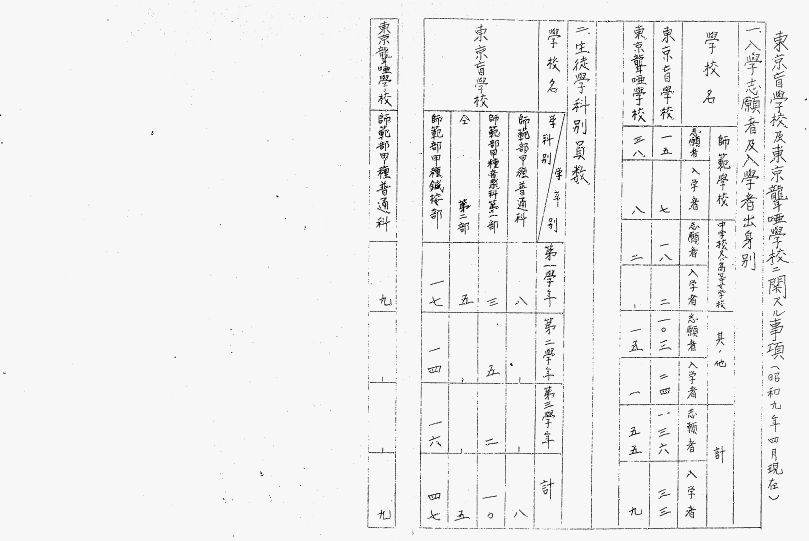 東京盲學校及東京聾唖學校ニ関スル事項（昭和九年四月現在）
一、入学志願者及入学者出身別
學校名 師範學校 中学校及高等女学校 其ノ他 計
志願者 入学者 志願者 入学者 志願者 入学者 志願者 入学者
東京盲學校 一五 七 一八 二 一〇三 二四 一三六 三三
東京聾唖學校 三八 八 二 、 一五 一 五五 九
二、生徒學科別員数
學校名 学科別 學年別 第一學年 第二學年 第三學年 計
東京盲學校
師範部甲種普通科 八 、 、 八
師範部甲種音楽科第一部 三 五 二 一〇
仝 第二部 五 、 、 五
師範部甲種鍼按部 一七 一四 一六 四七
東京聾唖學校 師範部甲種普通科 九 、 、 九